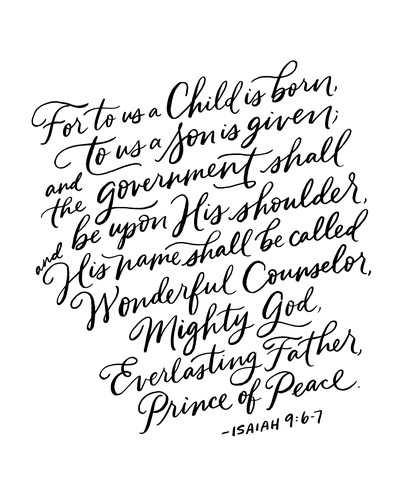 For to us a Child is born,
to us a Son is given;
and the government shall
be upon His shoulder,
and His name shall be called
Wonderful Counselor,
Mighty God,
Everlasting Father,
Prince of Peace.
-ISAIAH 9:6-7